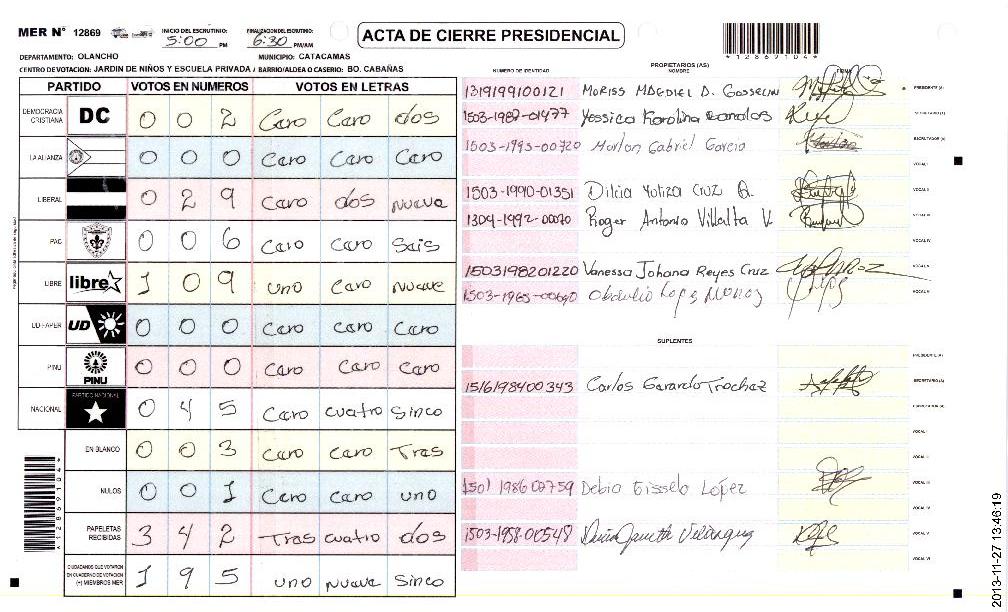 MER Nº 12869
INICIO DEL ESCRUTINIO: 5:00 PM
FINALIZACION DEL ESCRUTINIO: 6:30 PM/AM
ACTA DE CIERRE PRESIDENCIAL
*12869104*
DEPARTAMENTO: OLANCHO MUNICIPIO: CATACAMAS
CENTRO DE VOTACION: JARDIN DE NIÑOS Y ESCUELA PRIVADA / BARRIO/ALDEA O CASERIO: BO. CABAÑAS
PARTIDO VOTOS EN NUMEROS VOTOS EN LETRAS
DEMOCRACIA CRISTIANA DC 0 0 2 Cero Cero dos
LA ALIANZA 0 0 0 Cero Cero Cero
LIBERAL 0 2 9 Cero dos nueve
PAC 0 0 6 Cero Cero Seis
LIBRE libre 1 0 9 uno Cero nueve
UD-FAPER UD 0 0 0 Cero Cero Cero
PINU PINU 0 0 0 Cero Cero Cero
NACIONAL PARTIDO NACIONAL 0 4 5 Cero cuatro Sinco
EN BLANCO 0 0 3 Cero Cero Tres
NULOS 0 0 1 Cero Cero uno
PAPELETAS RECIBIDAS 3 4 2 Tres cuatro dos
CIUDADANOS QUE VOTARON EN CUADERNO DE VOTACION (+) MIEMBROS MER 1 9 5 uno nueve Sinco
*12869104*
PROPIETARIOS (AS)
NUMERO DE IDENTIDAD NOMBRE FIRMA
1319199100121 PRESIDENTE (A)
1503-1982-01477 Yessica Karolina SECRETARIO (A)
1503-1993-00720 Marlon Gabriel Garcia ESCRUTADOR (A)
VOCAL I
1503-1990-01351 Dilcia Yoliza Cruz VOCAL II
1309-1992-00070 Roger Antonio Villalta V. VOCAL III
VOCAL IV
1503198201220 Vanessa Johana Reyes Cruz VOCAL V
1503-1965-00690 Obdulio Lopez Munoz VOCAL VI
SUPLENTES
PRESIDENTE (A)
1516198400343 Carlos Gerardo Trochez SECRETARIO (A)
ESCRUTADOR (A)
VOCAL I
VOCAL II
1501 1986 02759 Debia Gissela López VOCAL III
VOCAL IV
1503-1958-00548 Velasquez VOCAL V
VOCAL VI
2013-11-27 13:46:19